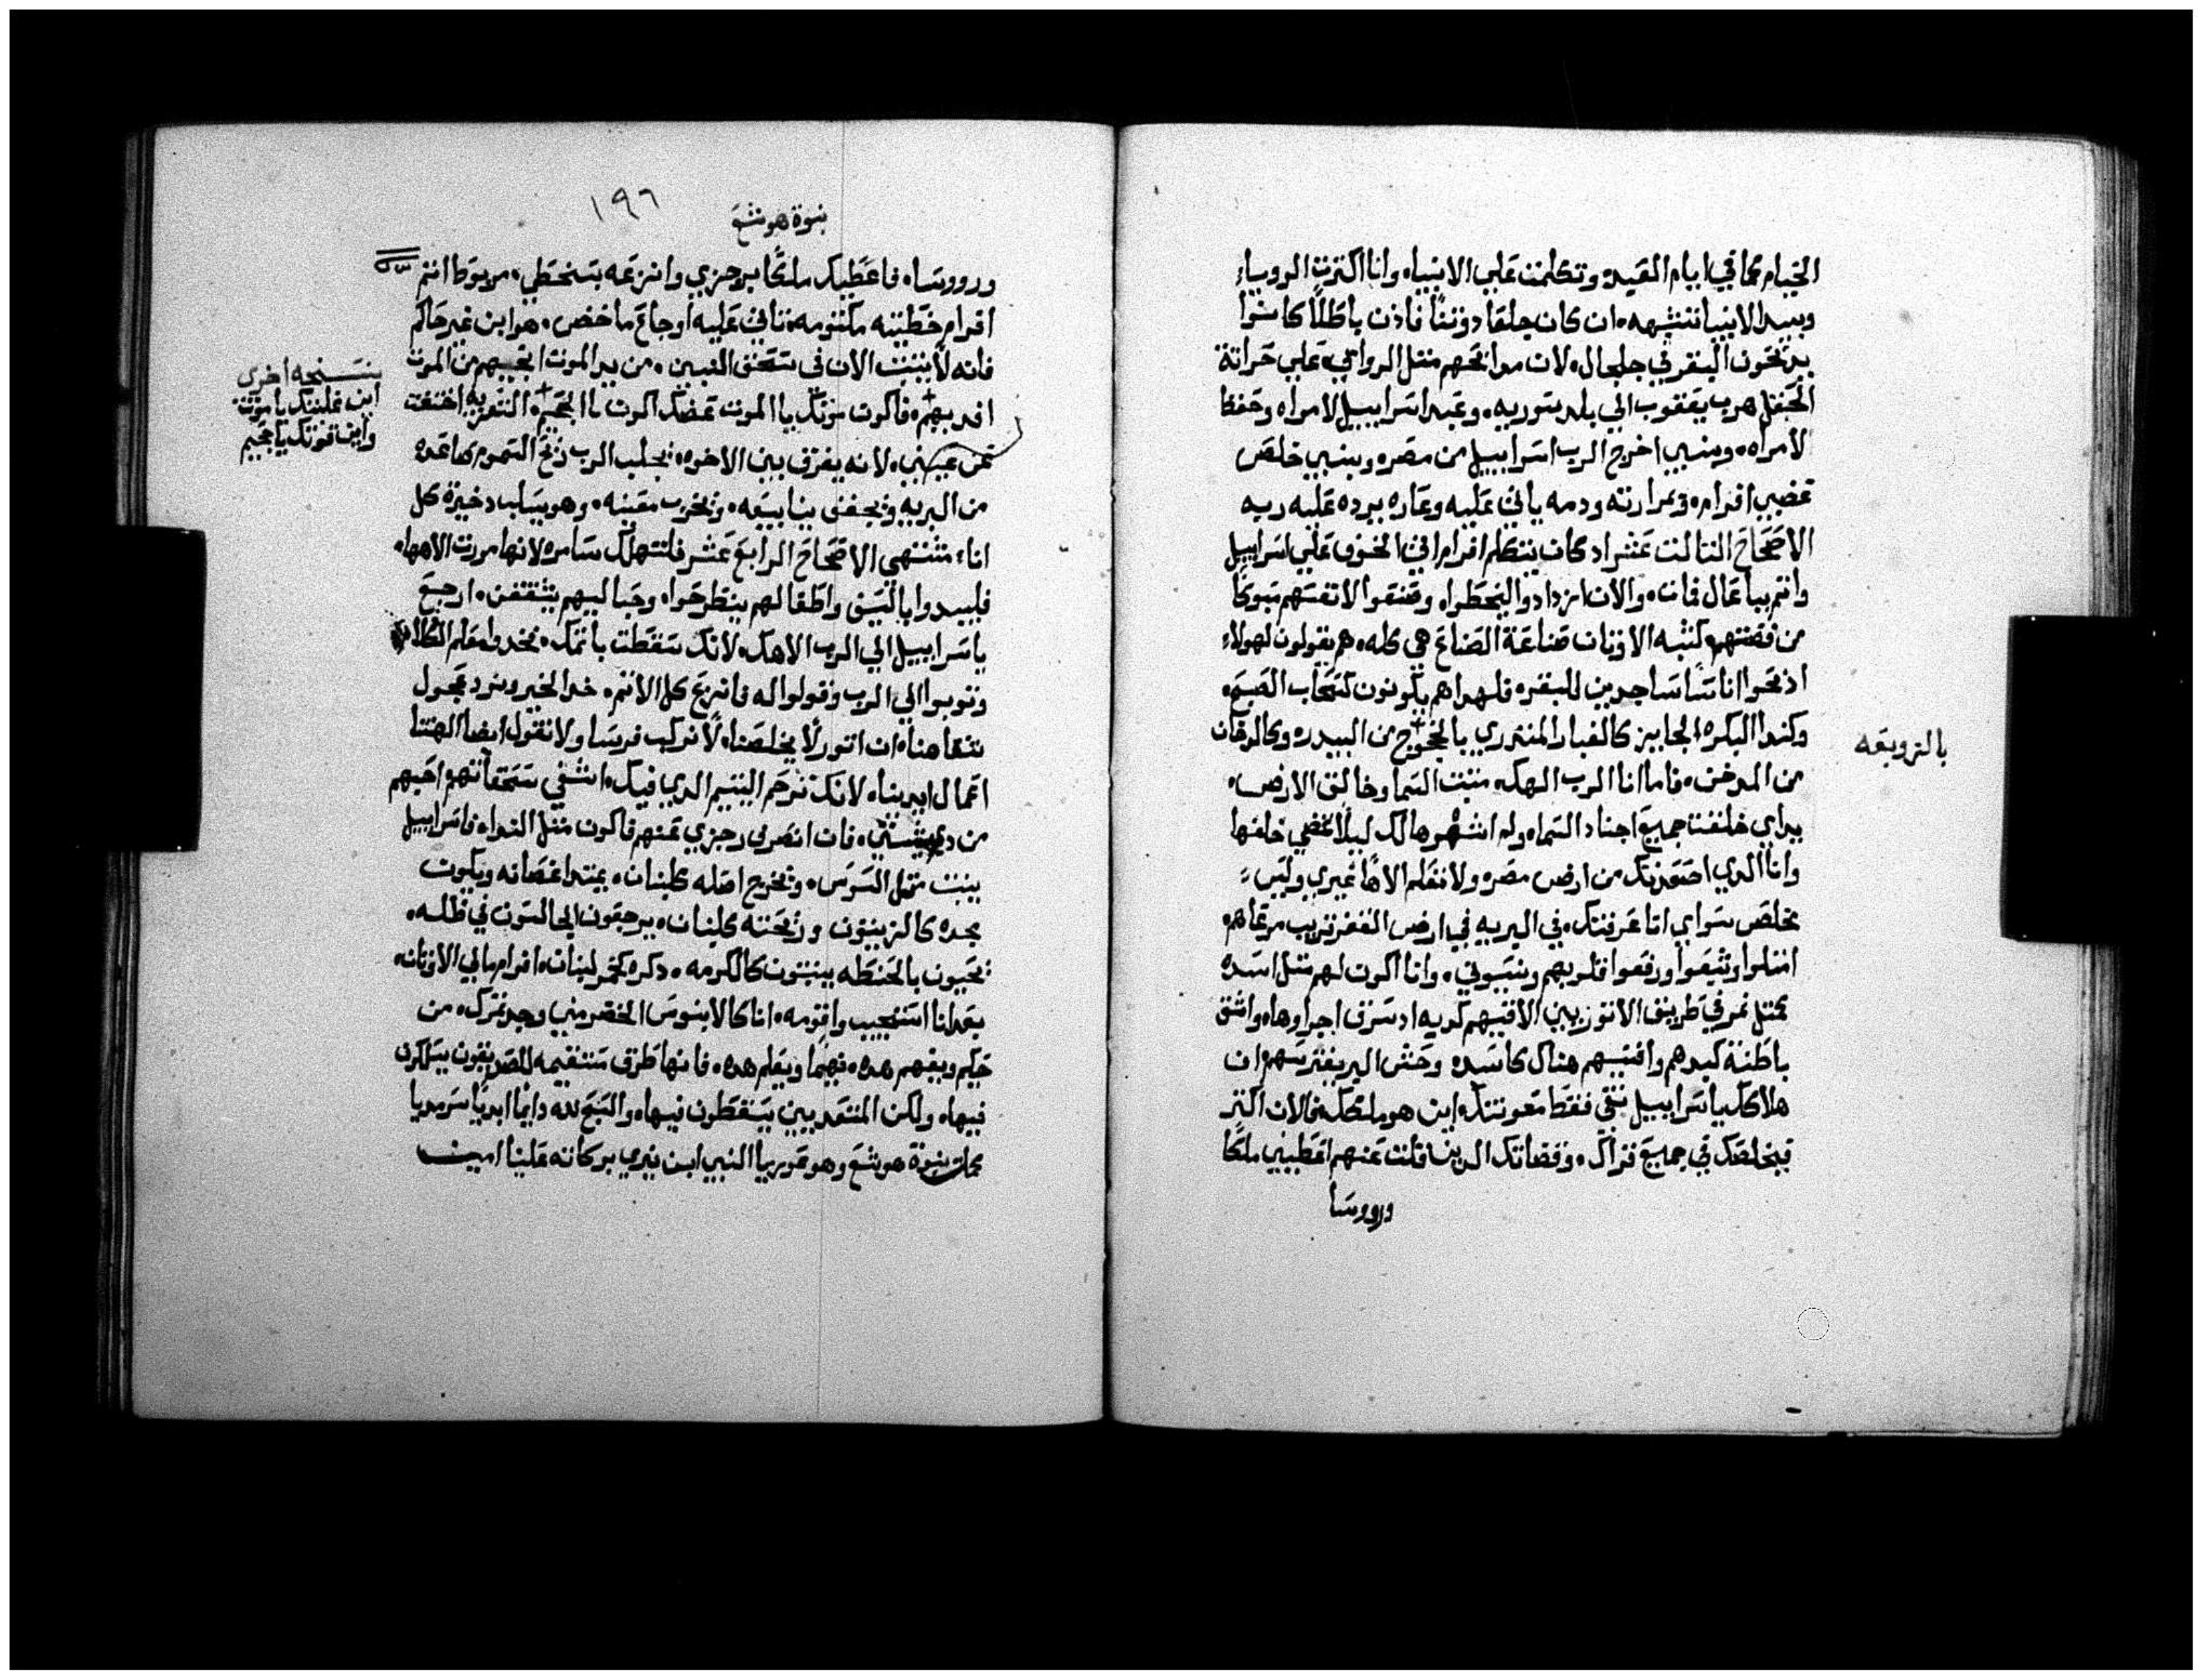 الخيام كما في ايام العيده وتكلمت علي الانبياء وانا اكثرت الروياء
وبيد الانبيا تشبهت ان كان جلعاد وثنًا فاذن باطلًا كانوا
يذبحون البقر في جلجال لان مدابحهم مثل الروابي علي حراثة
الحقل هرب يعقوب الي بلد سوريه وعبد اسراييل لامراه وحفظ
لامراه وبنبي اخرج الرب اسراييل من مصره وبنبي خلص
غضبي افرام في مرارته ودمه ياتي عليه وعاره يرده عليه ربه
الاصحاح التالت عشر اد كان يتكلم افرام اتي الخوف علي اسراييل
وانتم بباعال فمات والان ازدادوا ليخطوا وصنعوا لانفسهم مسبوكا
من فضتهم كشبه الاوثان صناعة الصناع هي كله هم يقولون لهولاء
اذبحوا اناسًا ساجدين للبقره فلهدا هم يكونون كسحاب الصبح
وكندا البكره الجايز كالغبار المنتري بالعجوج من البيدره وكالدخان
من المدخن فاما انا الرب الهك مثبت السما وخالق الارض
يداي خلقت جميع اجناد السماء ولم اشهرها لك ليلا تمضي خلفها
وانا الدي اصعدتك من ارض مصره ولا تعلم الاهًا غيري وليس
مخلص سواي انا عرفتك في البريه في ارض القفر قريب مرعاهم
امتلوا وشبعوا ورفعوا قلوبهم ونسوني وانا اكون لهم مثل اسده
كمثل نمر في طريق الاتوريين الاقيهم كدبه اد سرق اجراوها واشق
باطنة كبدهم وافنيهم هناك كاسده وحش البر يفترسهم ان
هلاكك يا اسراييل بي فقط معونتك اين هو ملكك فالان اكثر
فيخلصك في جميع قراك وقضاتك الدين قلت عنهم اعطيني ملكا
وروسا
بالزوبعه
نبوة هوشع
١٩٦
وروساه فاعطيك ملكًا برجزي وانزعه بسخطي مربوطا اثم
افرام خطيته مكتومه تاتي عليه اوجاع ماخض هو ابن غير حاكم
فانه لا يثبت الان في سحق البنين من يد الموت انجيهم من الموت
افديهم فاكون موتك يا الموت عضك اكون يا الجحيم التعزيه اختفت
عن عيني لانه يفرق بين الاخوه يجلب الرب ريح السموم صاعده
من البريه ويجفف ينابيعه ويخرب معينه وهو يسلب دخيرة كل
اناء مشتهي الاصحاح الرابع عشر فلتهلك سامره لانها مررت الاهها
فليبيدوا بالسيف واطفالهم ينطرحوا وحباليهم يشققن ارجع
يا اسراييل الي الرب الاهك لانك سقطت باثمك خدوا معكم الكلام
وتوبوا الي الرب وقولوا له فانزع كل الاثم خد الخير ونرد عجول
شفاهنا ان اتور لا يخلصنا لا نركب فرسا ولا نقول ايضا الهتنا
اعمال ايدينا لانك ترحم اليتيم الدي فيك اشفي سحقاتهم احبهم
من دي مشيتي فان انصرف رجزي عنهم فاكون مثل النداء فاسراييل
ينبت مثل السوس ويخرج اصله كلبنان يمتد اغصانه ويكون
مجده كالزيتون وريحته كلبنان يرجعون الجالسون في ظله
يحيون بالحنطه ينبتون كالكرمه دكره كخمر لبنان افرام مالي الاوثان
بعد انا استجيب واقومه انا كالابنوس الخضر مني وجد ثمرك من
حكيم ويفهم هده فهما ويعلم هده فانها طرق مستقيمه للصديقون يسلكون
فيها ولكن المتعديين يسقطون فيها والسبح لله دايما ابديا سرمديا
كملت نبوة هوشع وهو عوريا النبي ابن نيري بركاته علينا امين
نسخه اخري
اين غلبتك يا موت
واين قوتك يا جحيم